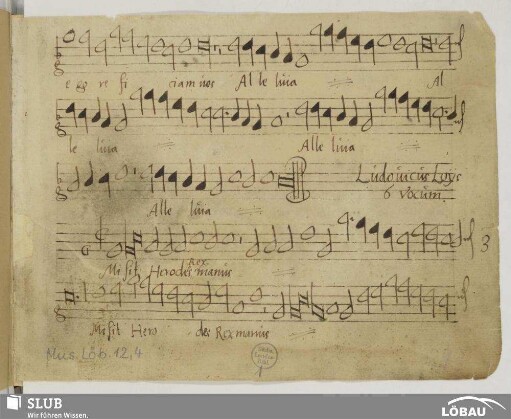 e go re fi ciam vos Al le luia Al
le luia Alle luia
Alle luia
Ludovicus
6 vocum.
Misit Herodes Rex manus
3
Misit Hero des Rex manus
Mus. Löb. 12,4
SLUB
Wir führen Wissen.
LÖBAU